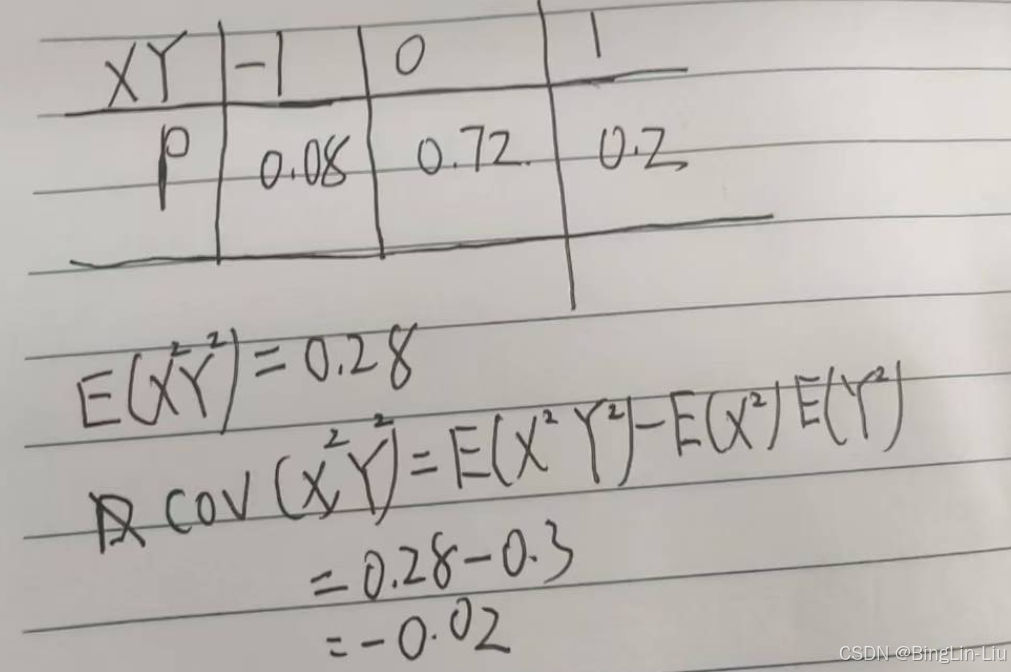 XY -1 0 1
P 0.08 0.72. 0.2
E(X²Y²)=0.28
COV(X²,Y²)=E(X²Y²)-E(X²)E(Y²)
=0.28-0.3
=-0.02
CSDN @BingLin-Liu